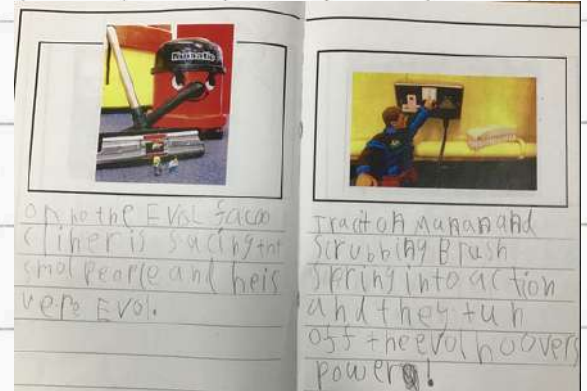 Numatic
oh no the Evol facao
cliner is sacing tht
smol people and heis
vere Evol.
Traction Manan and
scrubbing Brush
spring into action
and they tun
off the evol hoovers
power!